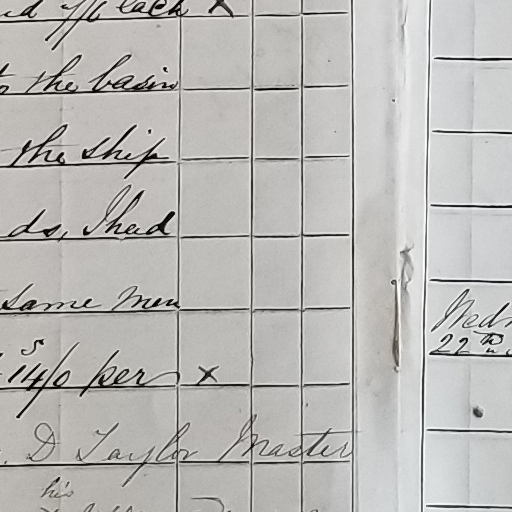 7/6 each x
to the basin
the ship
ds, I had
same men
5
14/0 per x
D Taylor Master
his
Wedn
22nd